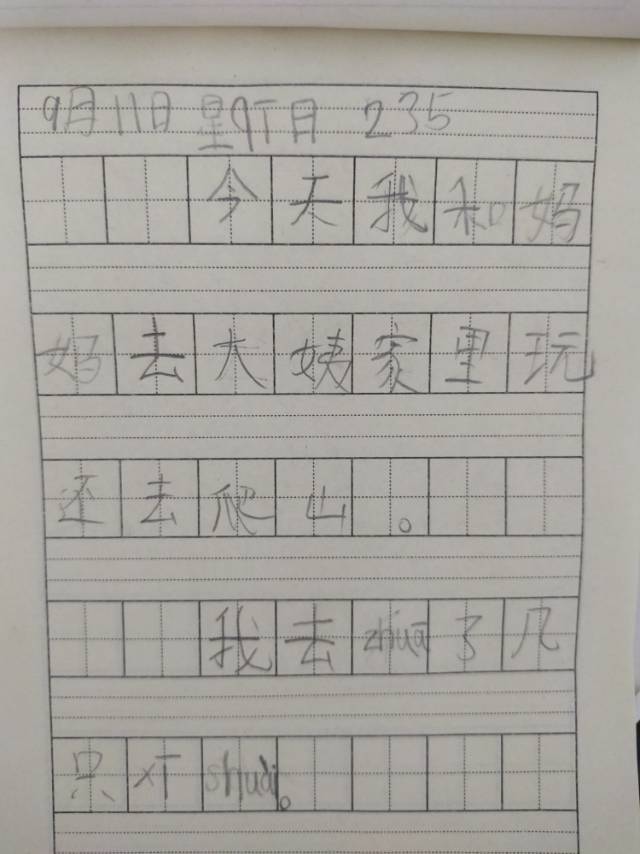 9月11日 星qT日 235
今天我和妈
妈去大姨家里玩
还去爬山。
我去zhuā了几
只xTshuài。